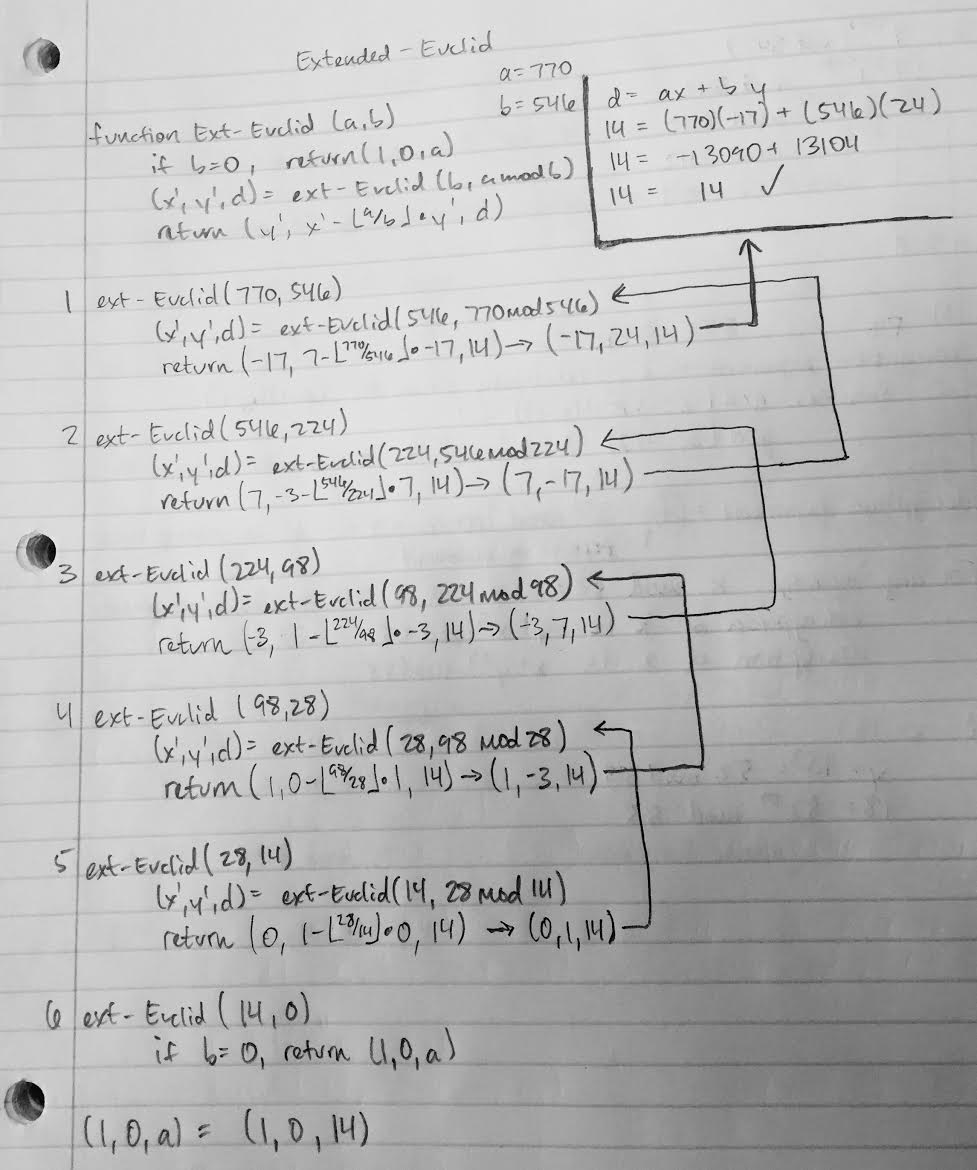 Extended-Euclid
a=770
b=546
function Ext-Euclid (a,b)
if b=0, return(1,0,a)
(x',y',d)= ext-Euclid (b, a mod b)
return (y', x'-⌊a/b⌋•y', d)
d= ax + by
14 = (770)(-17) + (546)(24)
14 = -13090+ 13104
14 = 14 ✓
1 ext-Euclid(770, 546)
(x',y',d)= ext-Euclid(546, 770mod546)
return (-17, 7-⌊770/546⌋•-17, 14)→(-17, 24, 14)
2 ext-Euclid(546,224)
(x',y',d)= ext-Euclid(224,546mod224)
return (7,-3-⌊546/224⌋•7, 14)→(7,-17,14)
3 ext-Euclid (224,98)
(x',y',d)= ext-Euclid(98, 224 mod 98)
return (-3, 1-⌊224/98⌋•-3, 14)→(-3,7,14)
4 ext-Euclid (98,28)
(x',y',d)= ext-Euclid(28,98 mod 28)
return (1,0-⌊98/28⌋•1, 14)→(1,-3,14)
5 ext-Euclid(28,14)
(x',y',d)= ext-Euclid(14, 28 mod 14)
return (0, 1-⌊28/14⌋•0, 14) → (0,1,14)
6 ext-Euclid (14,0)
if b=0, return (1,0,a)
(1,0,a) = (1,0,14)